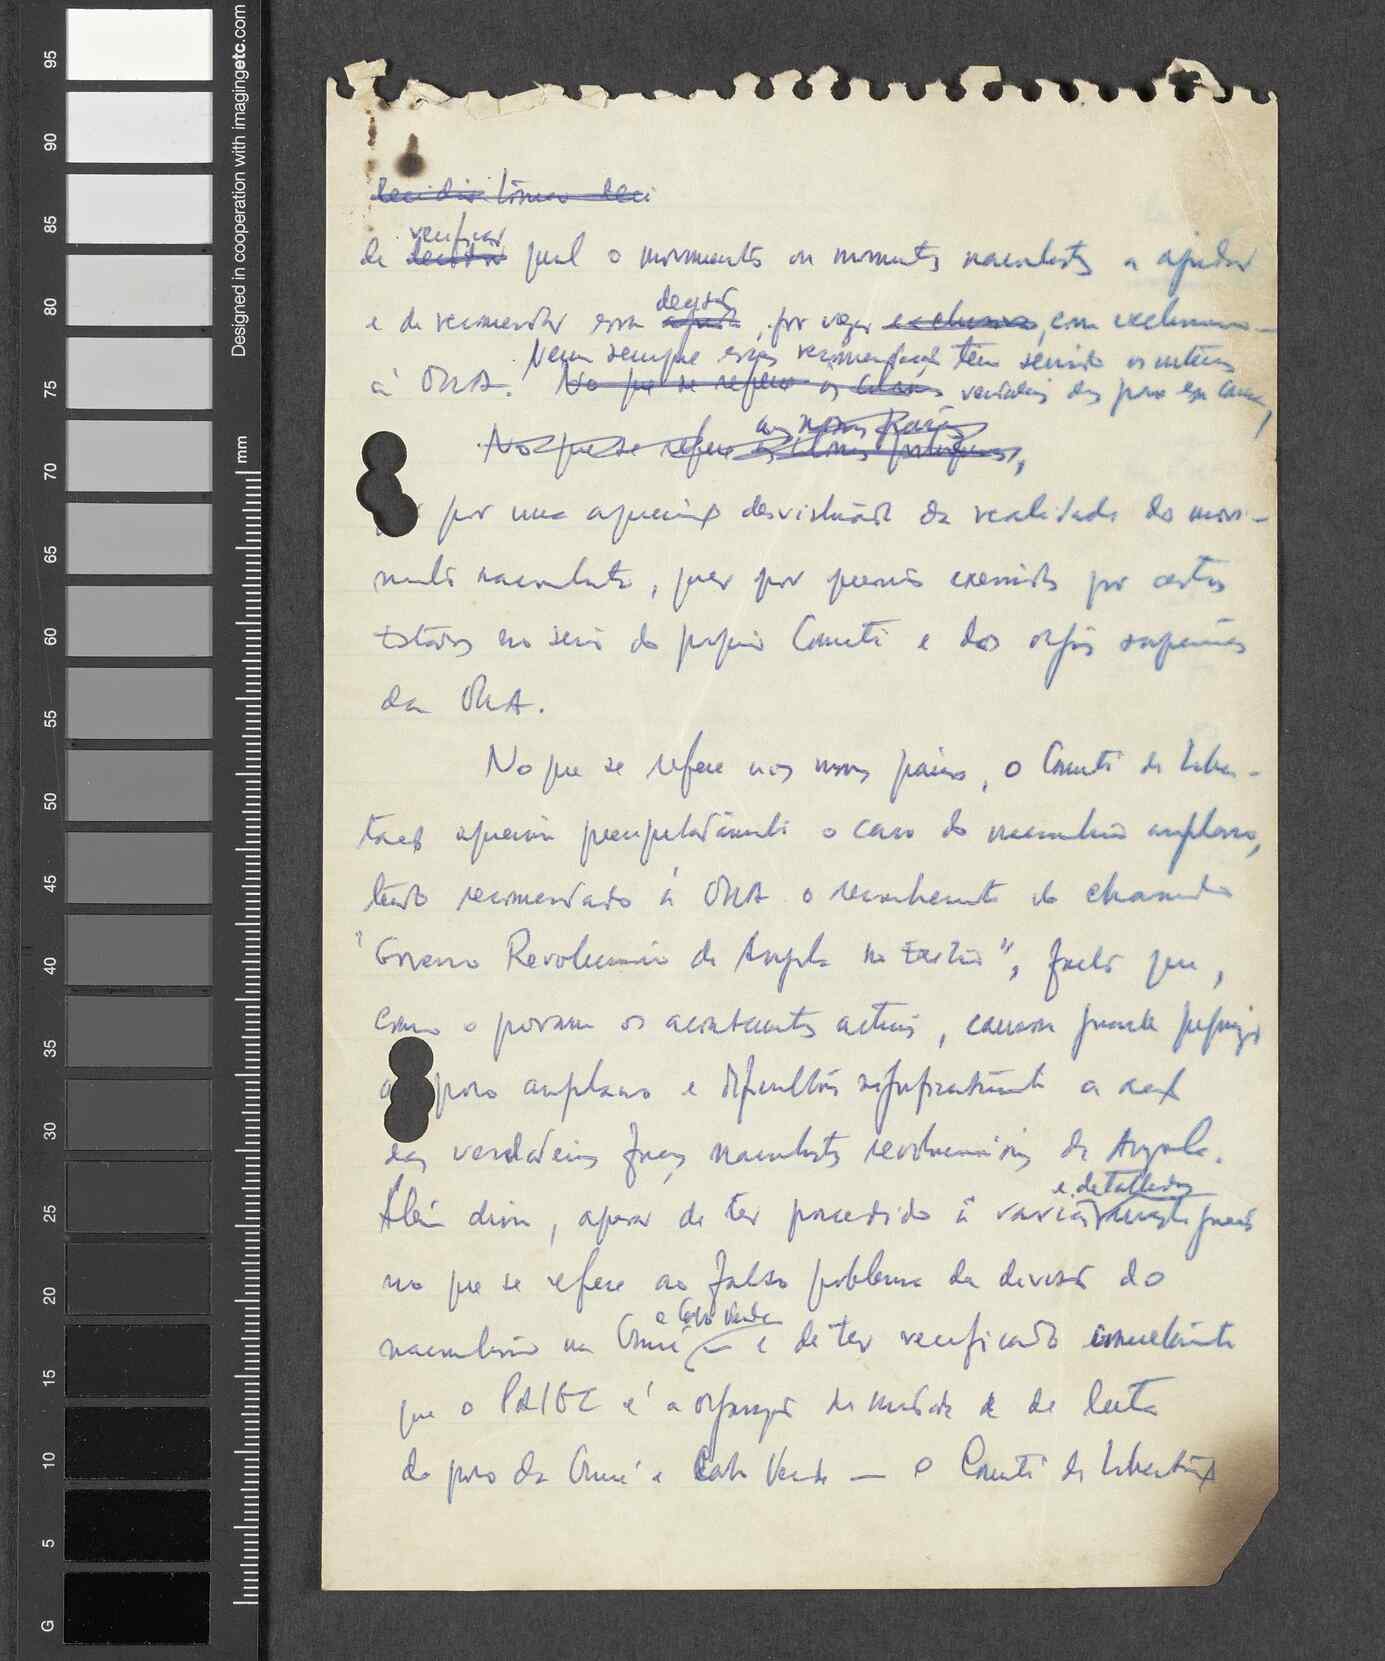 de verificar qual o movimento ou movimentos nacionalistas a ajudar
e de recomendar essa decisão, por vezes exclusiva, com exclusivi-
Nem sempre essas recomendações têm servido os interesses
à OUA. No que se refere às verdadeiros dos povos em causa,
aos nossos Países
No que se refere às colónias portuguesas,
por uma apreciação da realidade do movi-
mento nacionalista, quer por pressões exercidas por certos
Estados no seio do próprio Comité e dos orgãos superiores
da OUA.
No que se refere aos nossos países, o Comité de Liber-
tação apreciou precipitadamente o caso do nacionalismo angolano,
tendo recomendado à OUA o reconhecimento do chamado
"Governo Revolucionário de Angola no Exílio", facto que,
como o provam os acontecimentos actuais, causou grande prejuízo
ao povo angolano e dificultou significativamente a acção
das verdadeiras forças nacionalistas revolucionárias de Angola.
e detalhados
Além disso, apesar de ter procedido a vários
no que se refere ao falso problema da divisão do
e Cabo Verde
nacionalismo na Guiné e de ter verificado
que o PAIGC é a organização de unidade e de luta
do povo da Guiné e Cabo Verde — o Comité de Libertação
95
90
85
80
75
70
65
60
55
50
45
40
35
30
25
20
15
10
5
G
Designed in cooperation with imagingetc.com
mm